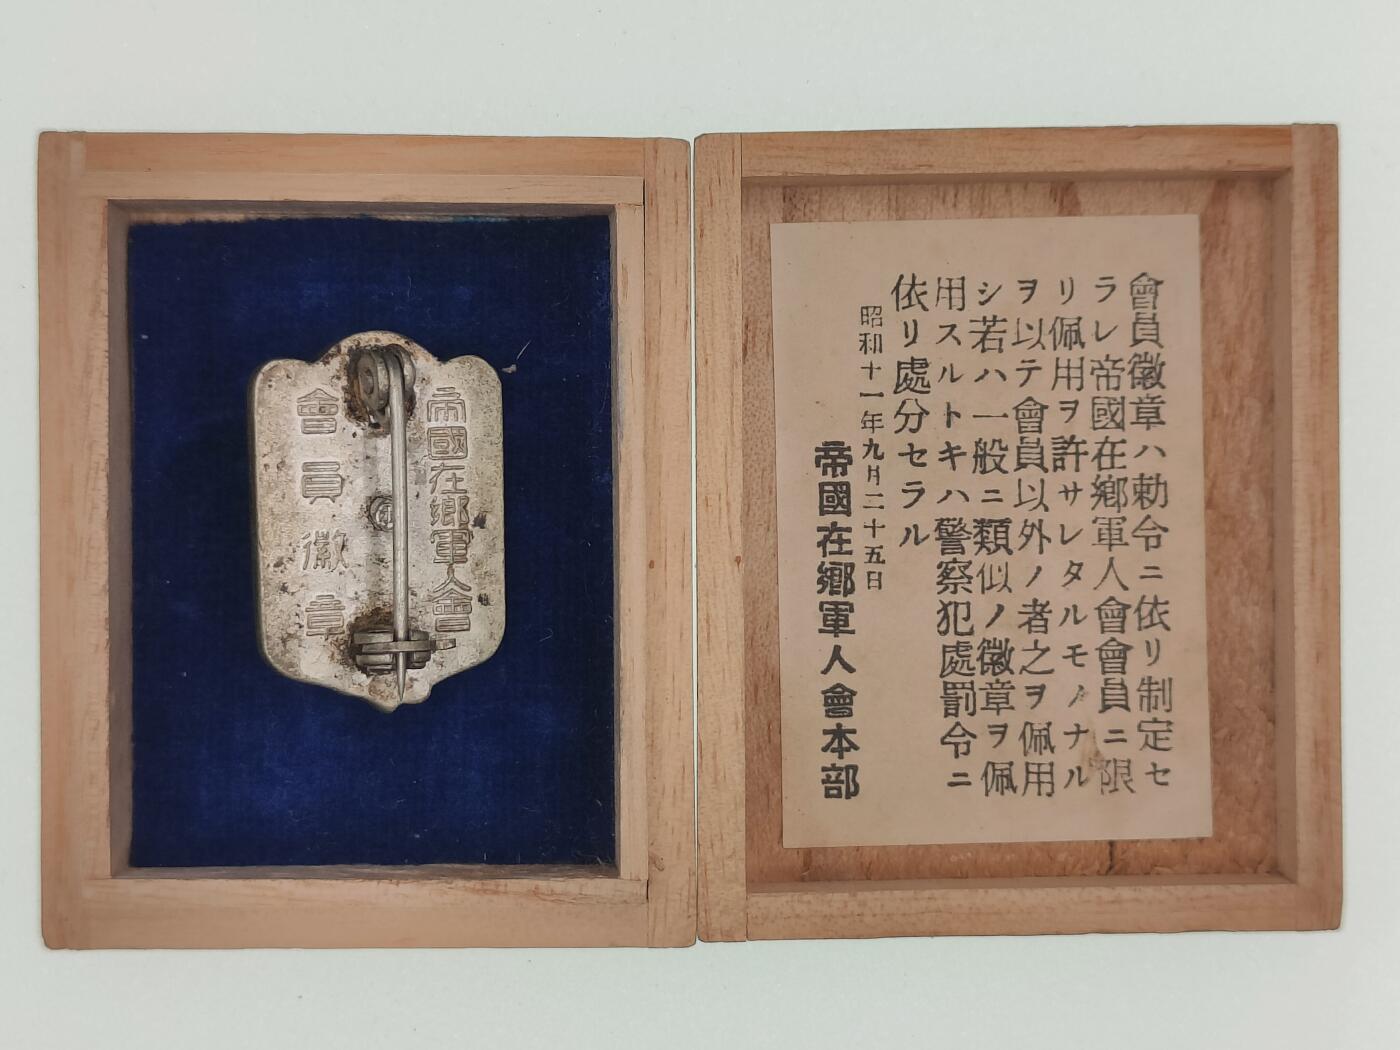 會員徽章ハ勅令ニ依リ制定セ
ラレ帝國在鄕軍人會會員ニ限
リ佩用ヲ許サレタルモノナル
ヲ以テ會員以外ノ者之ヲ佩用
シ若ハ一般ニ類似ノ徽章ヲ佩
用スルトキハ警察犯處罰令ニ
依リ處分セラル
昭和十一年九月二十五日
帝國在鄕軍人會本部
帝國在鄕軍人會
會員徽章